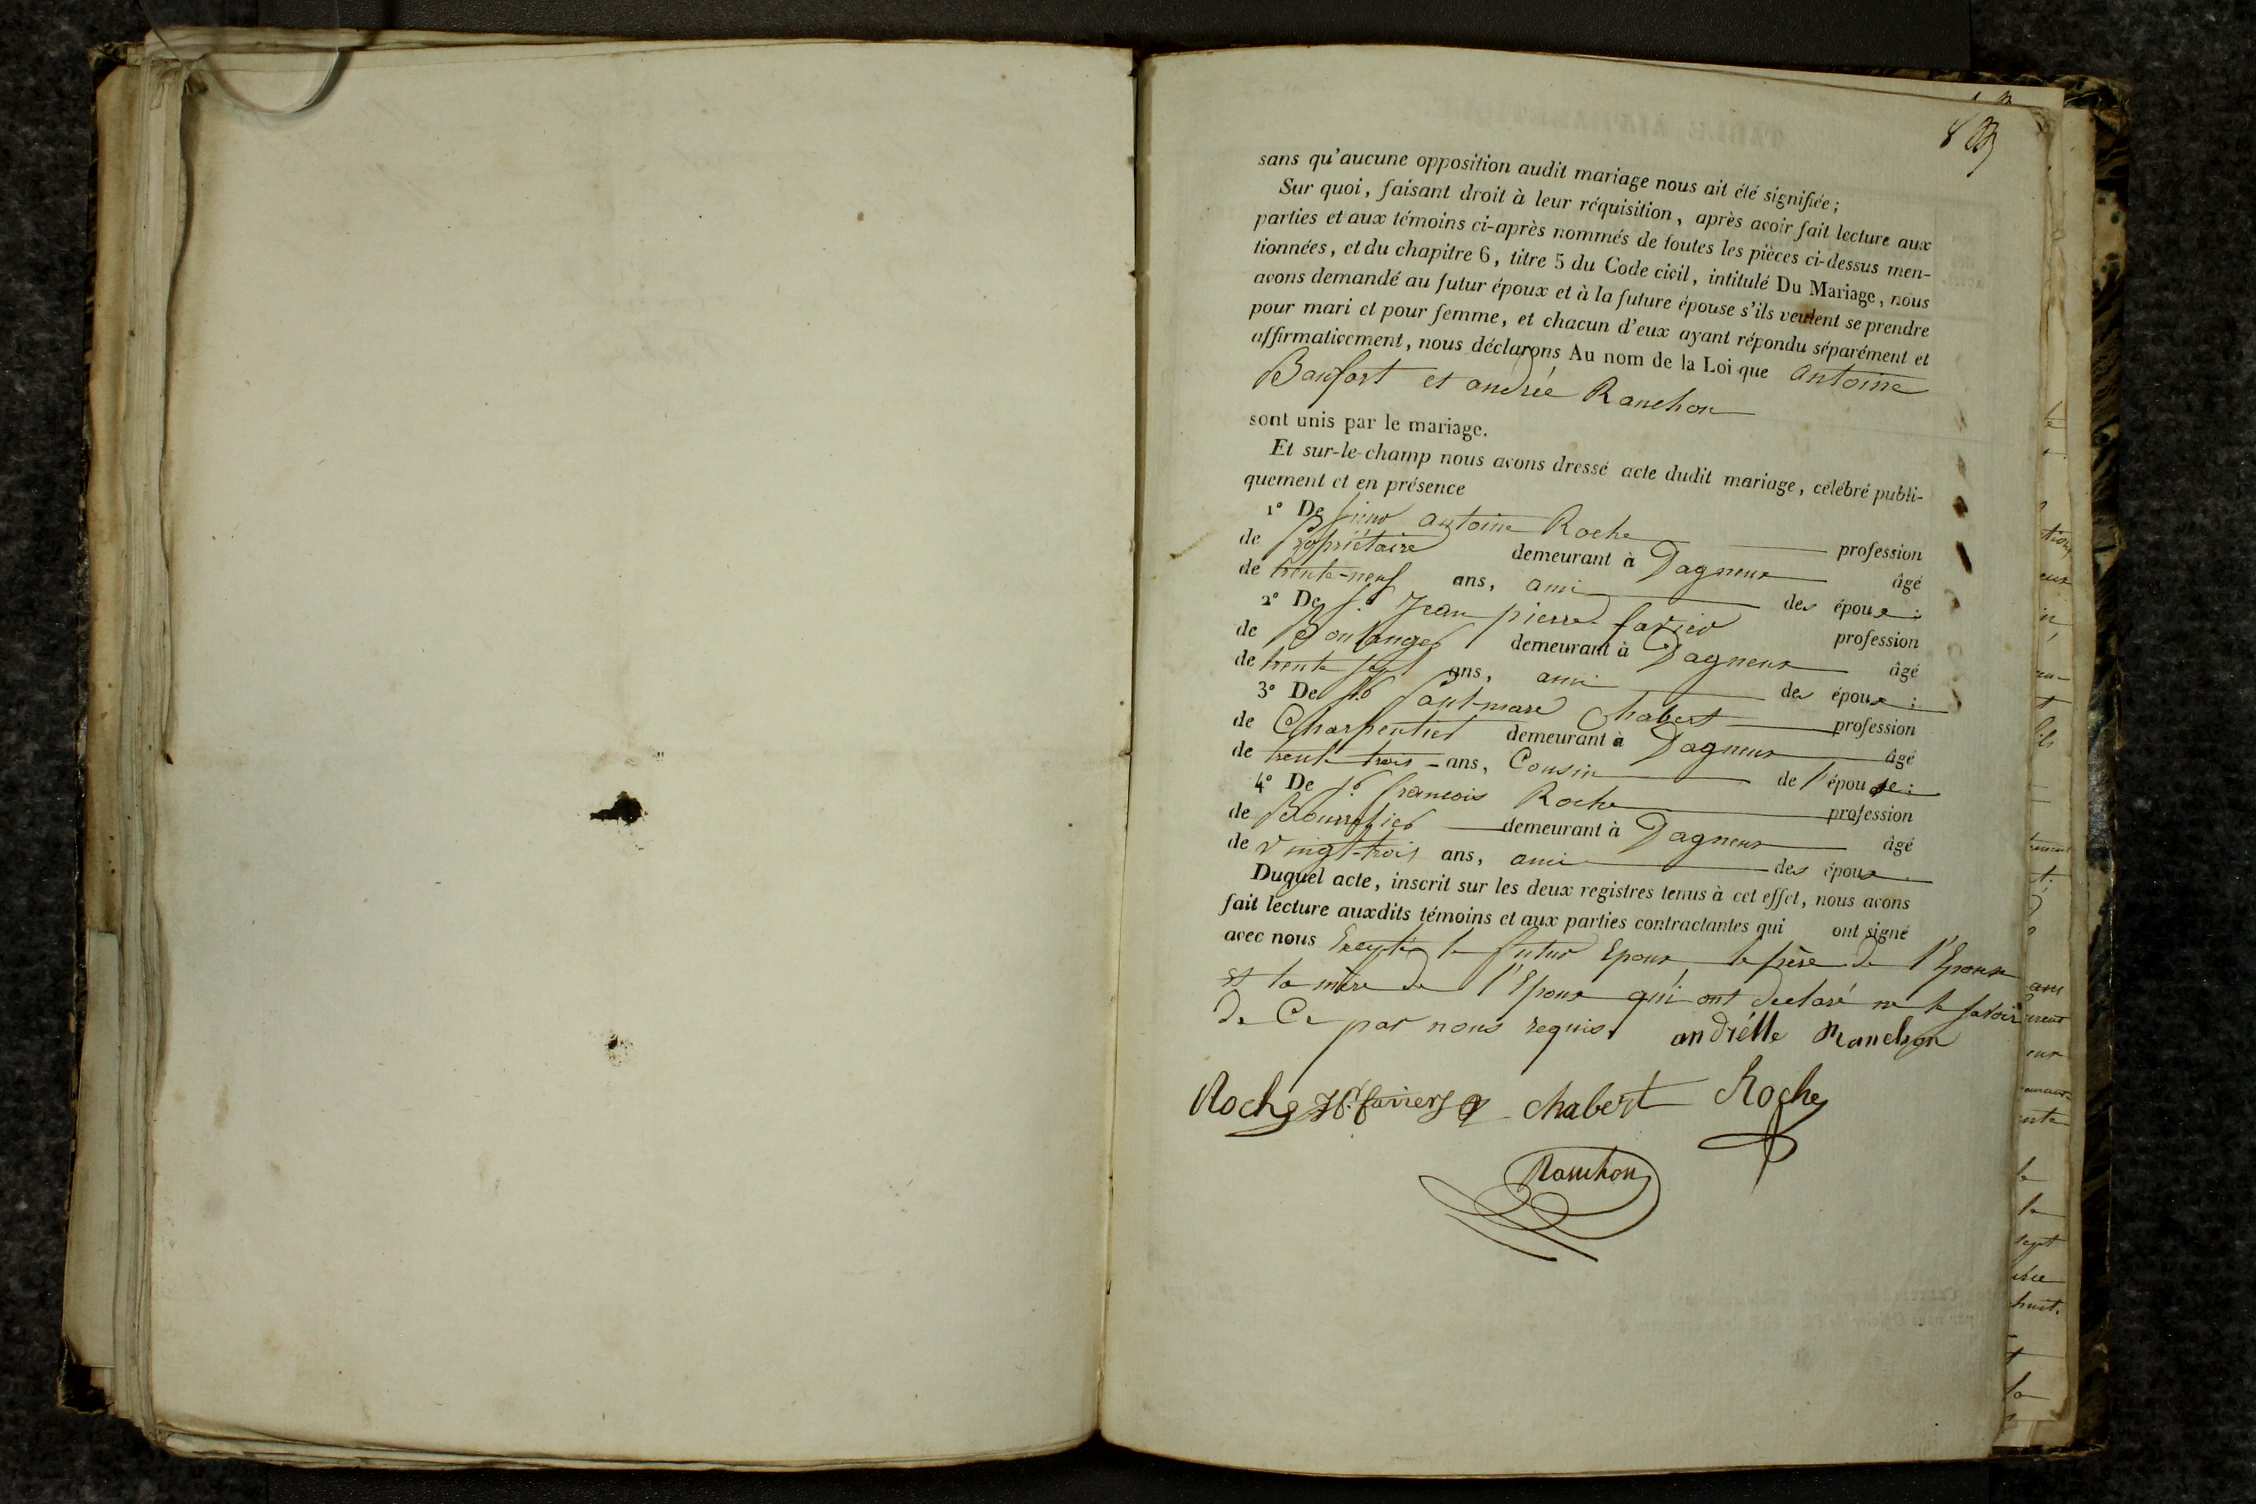 sans qu'aucune opposition audit mariage nous ait été signifiée;
Sur quoi, faisant droit à leur réquisition, après avoir fait lecture aux
parties et aux témoins ci-après nommés de toutes les pièces ci-dessus men-
tionnées, et du chapitre 6, titre 5 du Code civil, intitulé Du Mariage, nous
avons demandé au futur époux et à la future épouse s'ils veulent se prendre
pour mari et pour femme, et chacun d'eux ayant répondu séparément et
affirmativement, nous déclarons Au nom de la Loi que Antoine
Baufort et andrée Ranchon
sont unis par le mariage.
Et sur-le-champ nous avons dressé acte dudit mariage, célébré publi-
quement et en présence
1° De sieur antoine Roche profession
de Propriétaire demeurant à Dagneux âgé
de trente-neuf ans, ami des époux;
2° De s.r Jean pierre favier profession
de Boulanger demeurant à Dagneux âgé
de trente sept ans, ami des époux;
3° De s.r Paul-marc Chabert profession
de Charpentier demeurant à Dagneux âgé
de trente trois ans, Cousin de l'épouse;
4° De s.r francois Roche profession
de Bourrelier demeurant à Dagneux âgé
de vingt-trois ans, ami des époux
Duquel acte, inscrit sur les deux registres tenus à cet effet, nous avons
fait lecture auxdits témoins et aux parties contractantes qui ont signé
avec nous Excepté le futur Epoux le frère de l'Epoux
et la mère de l'Epoux qui ont declaré ne le savoir
de Ce par nous requis. andrélle Ranchon
Roche favier chabert Roche
Ranchon